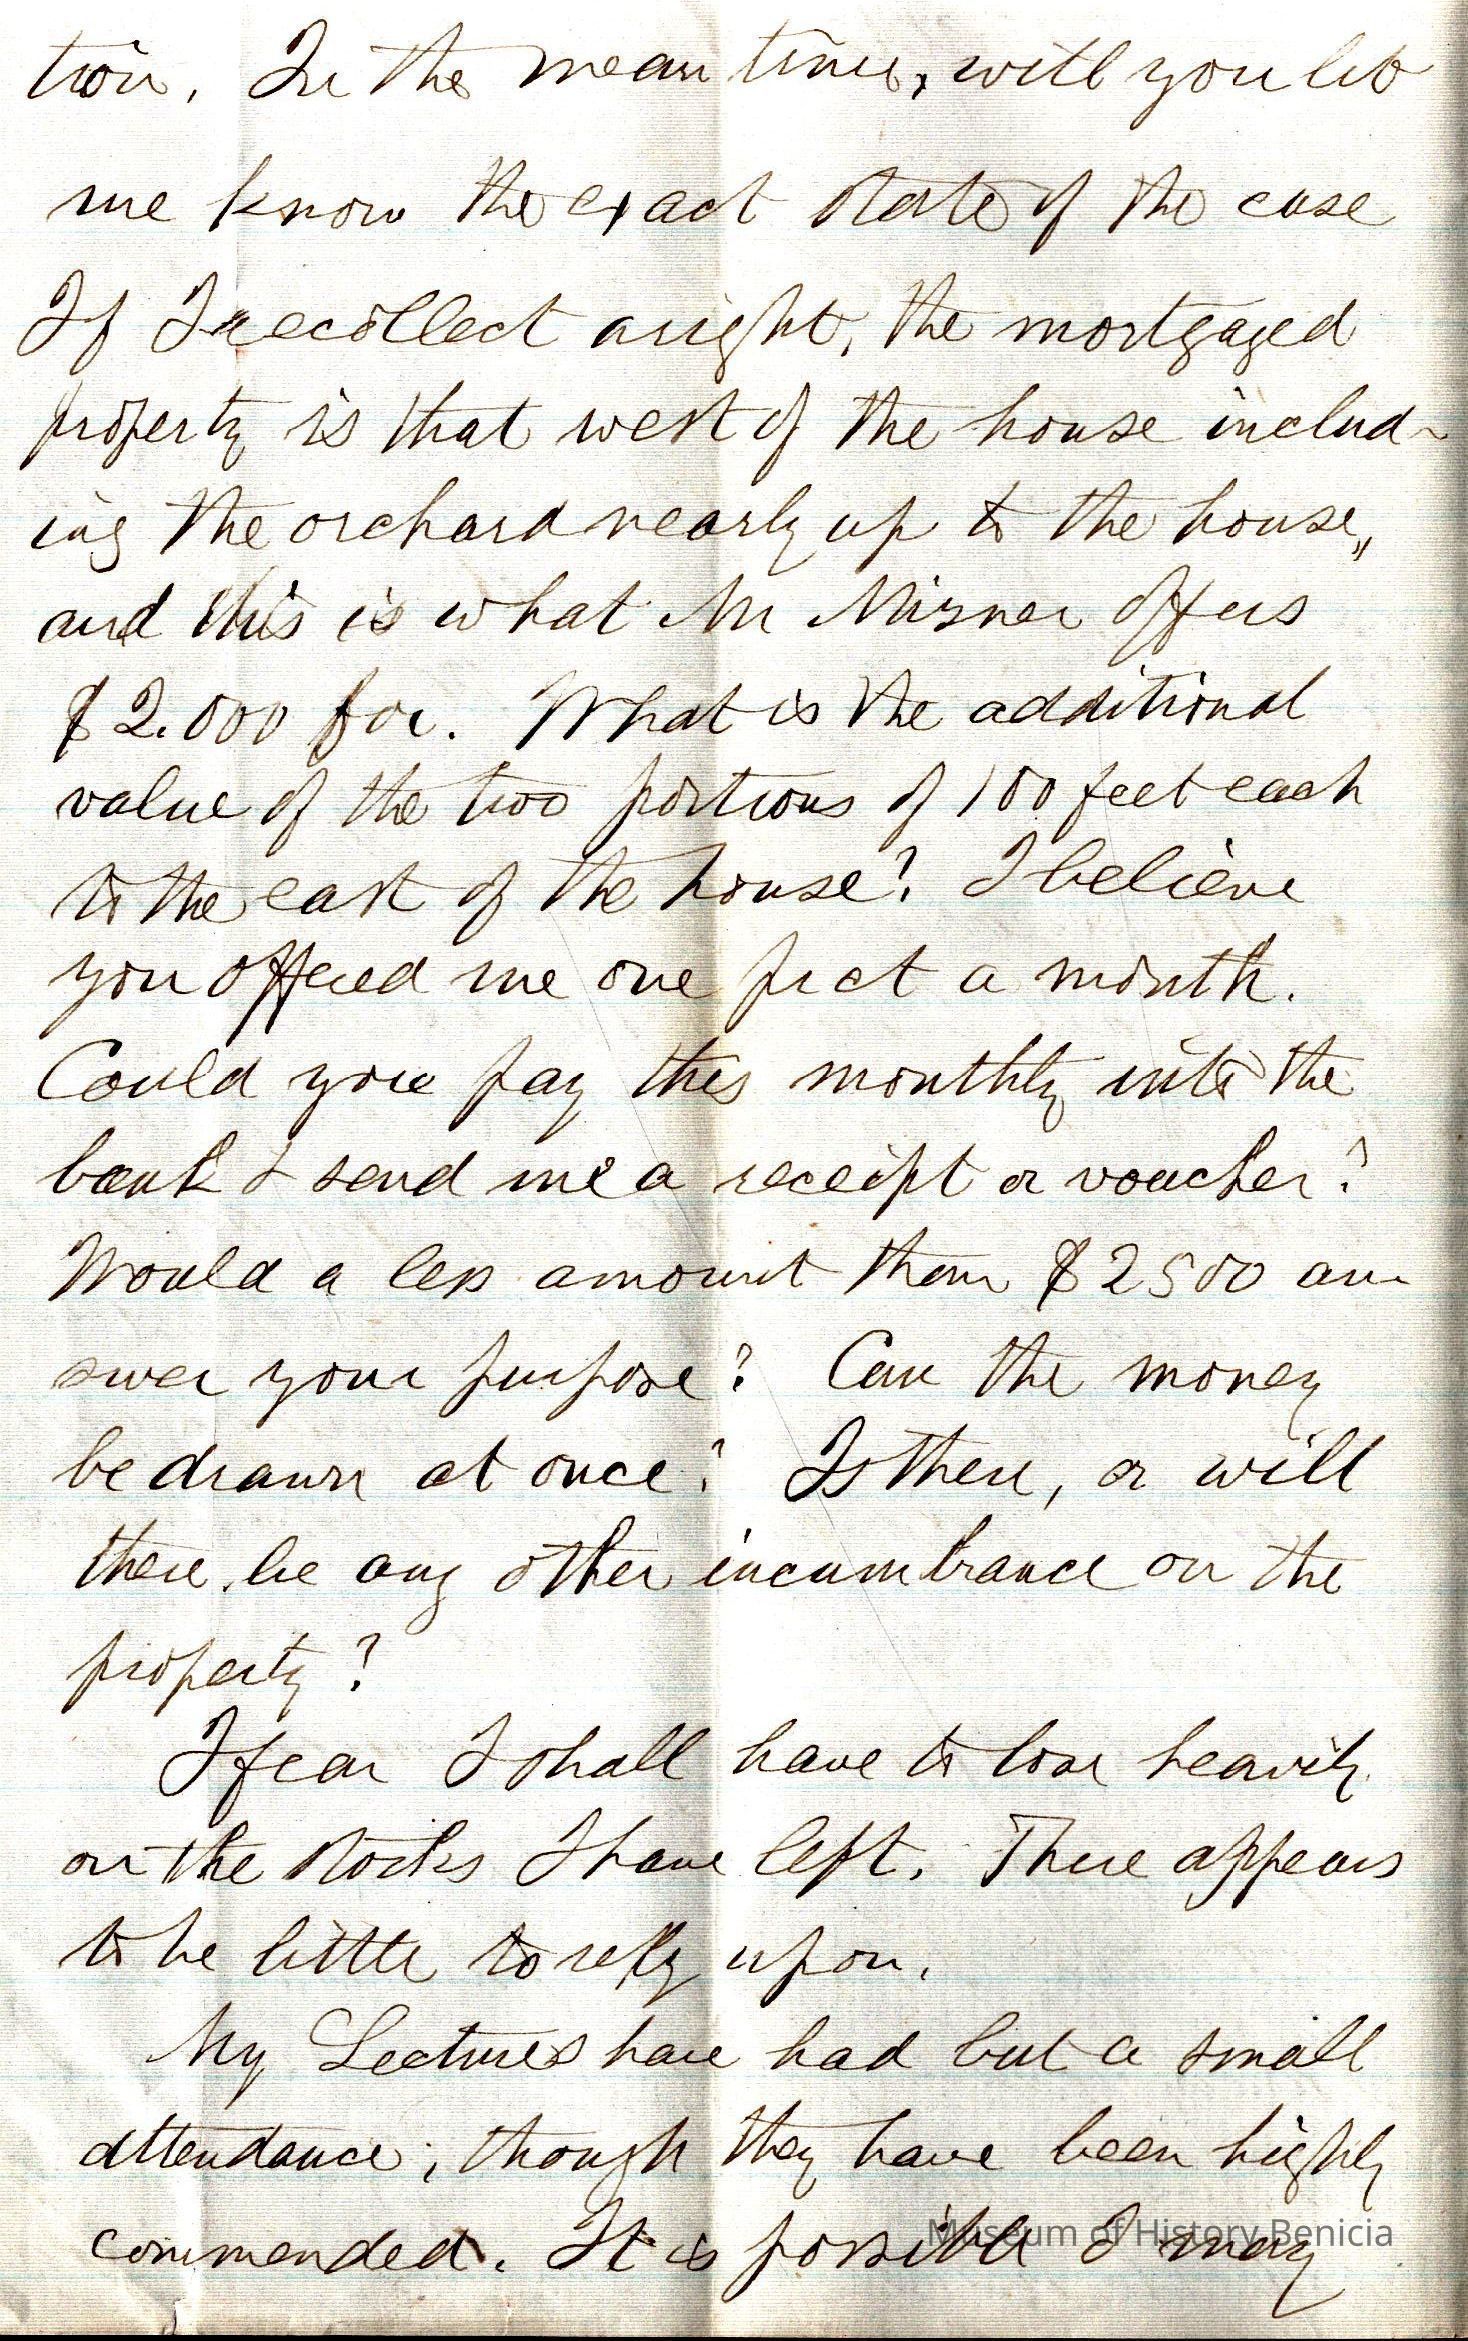 tion. In the mean time, will you let
me know the exact state of the case
If I recollect aright, the mortgaged
property is that west of the house includ-
ing the orchard nearly up to the house,,
and this is what Mr Mizner offers
$2.000 for. What is the additional
value of the two portions of 100 feet each
to the east of the house? I believe
you offered me one prct a month.
Could you pay this monthly into the
bank & send me a receipt or voucher?
Would a less amount than $2500 an-
swer your purpose? Can the money
be drawn at once? Is there, or will
there be any other incumbrance on the
property?
I fear I shall have to lose heavily
on the stocks I have left. There appears
to be little to rely upon.
My Lectures have had but a small
attendance; though they have been highly
commended. It is possible I may
Museum of History Benicia